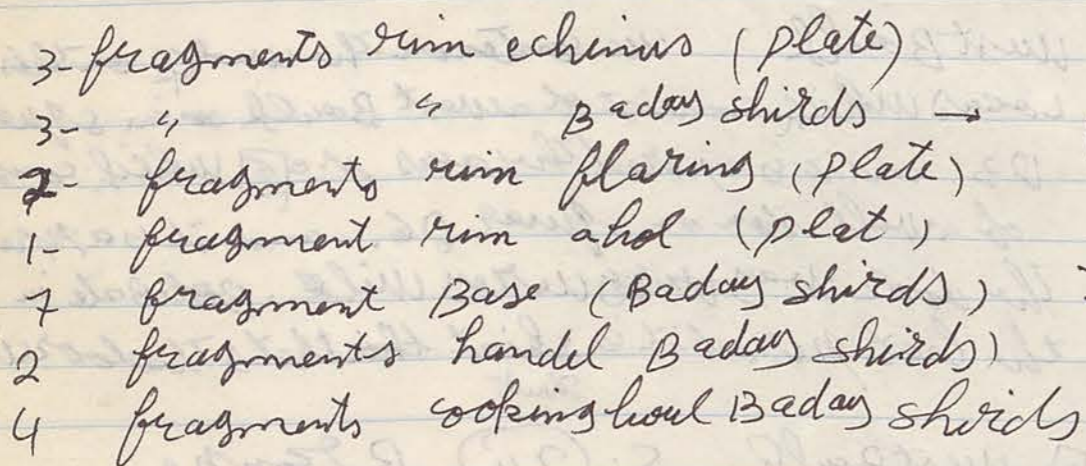 3- fragments rim echinus (plate)
3- " " Baday shirds →
2- fragments rim flaring (plate)
1- fragment rim ahol (plat)
7 fragment Base (Baday shirds)
2 fragments handel Baday shirds)
4 fragments cooking boul Baday shirds